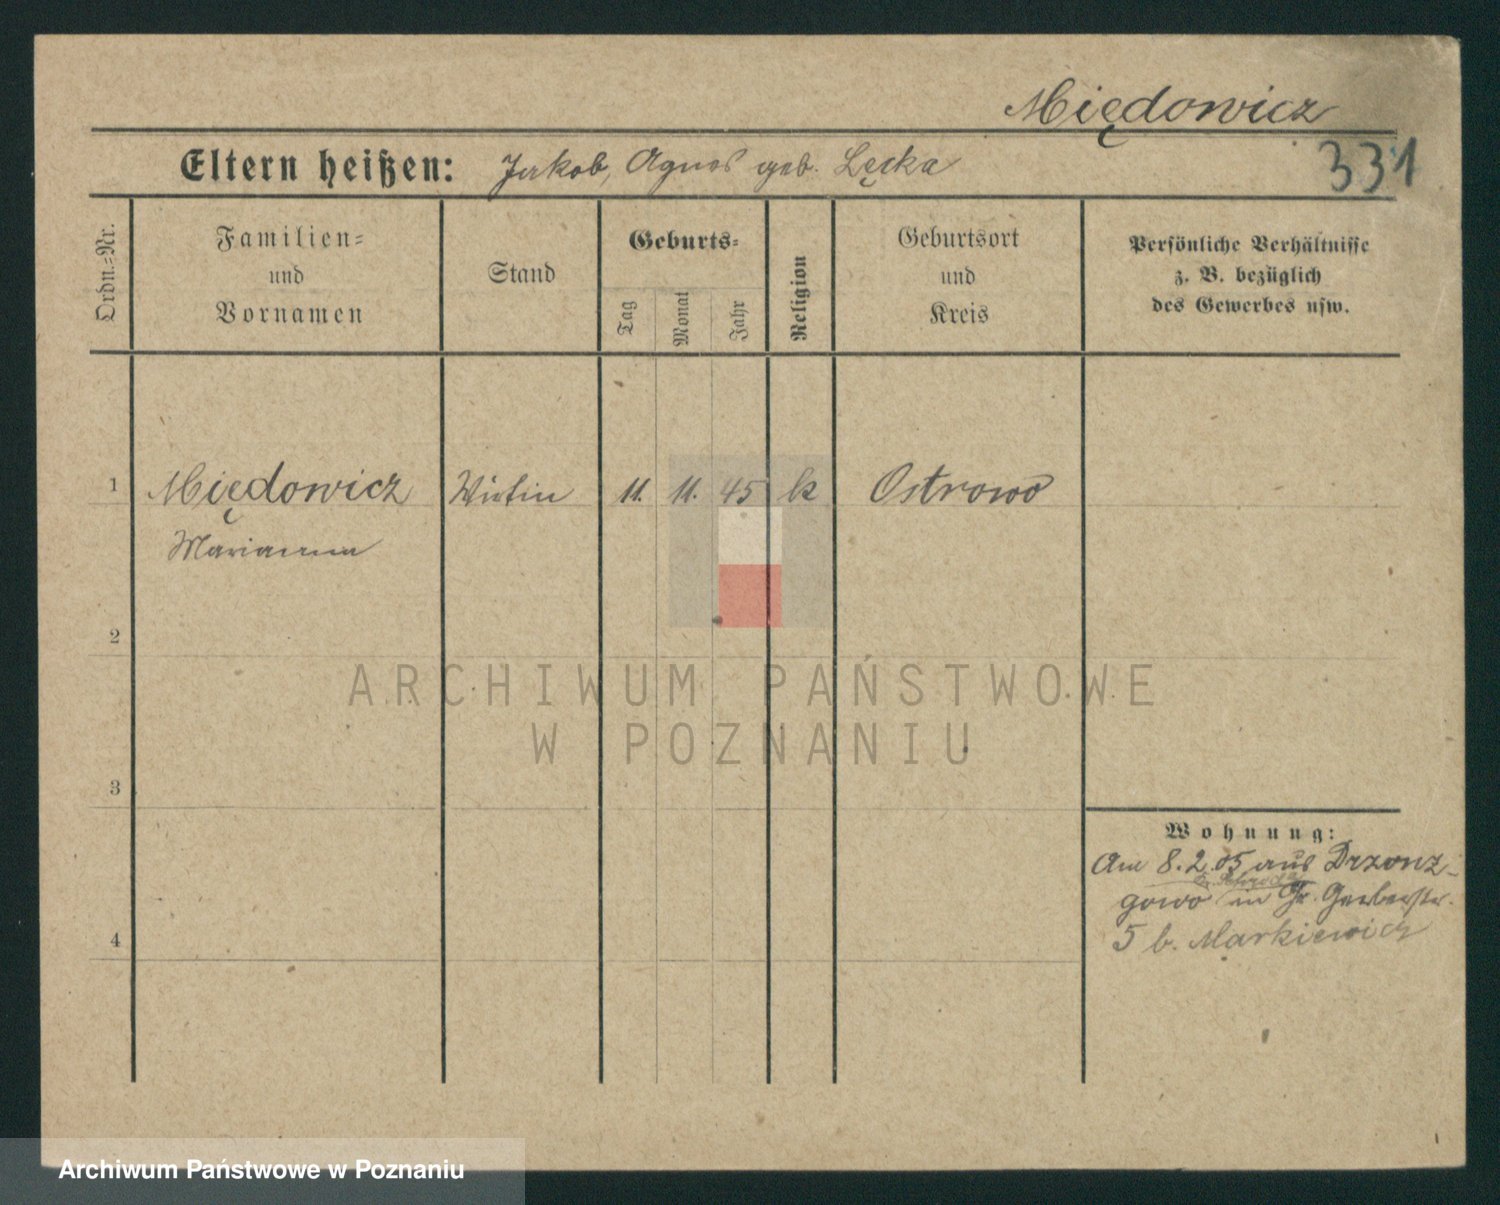 Międowicz
Eltern heißen: Jakob, Agnes geb. Lęcka
331
Ordn.-Nr.
Familien-
und
Vornamen
Stand
Geburts-
Tag
Monat
Jahr
Religion
Geburtsort
und
Kreis
Persönliche Verhältnisse
z. B. bezüglich
des Gewerbes usw.
1 Międowicz Wirtin 11. 11. 45 k Ostrowo
Marianna
2
3
4
ARCHIWUM PAŃSTWOWE
W POZNANIU
Wohnung:
Am 8.2.05 aus Drzonz-
gowo in Gr. Gerberstr.
5 b. Markiewicz
Archiwum Państwowe w Poznaniu